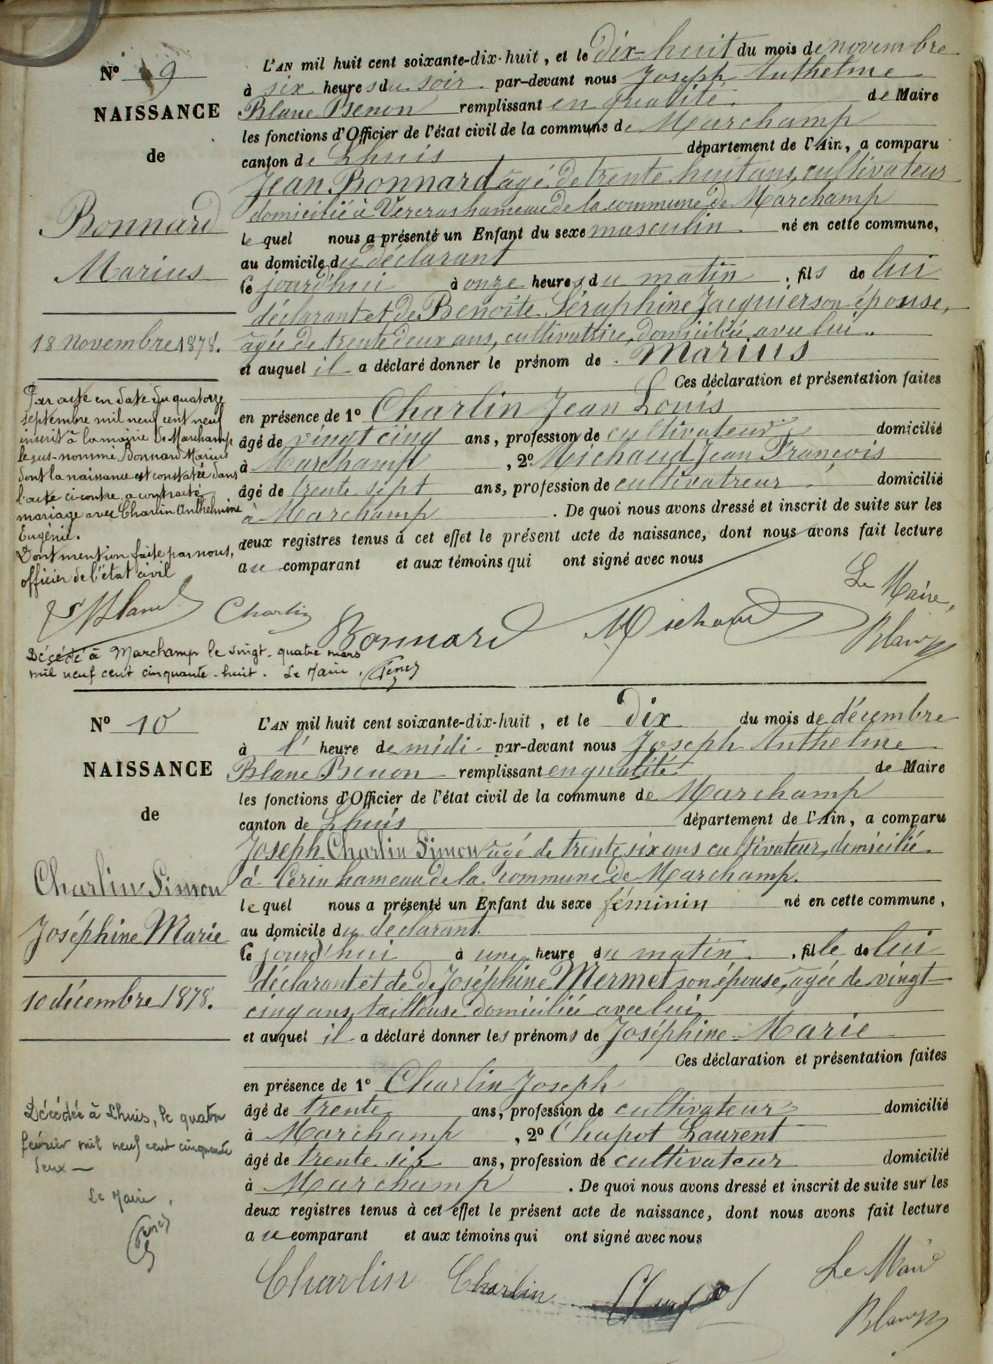 N° 9
NAISSANCE
de
Bonnard
Marius
18 novembre 1878.
Par acte en date du quatorze
septembre mil neuf cent neuf
inscrit à la mairie de Marchamp
le sus-nommé Bonnard Marius
dont la naissance est constatée dans
l'acte ci-contre a contracté
mariage avec Charlin Anthelmine
Eugénie.
Dont mention faite par nous,
officier de l'état civil
Décédé à Marchamp le vingt-quatre mars
mil neuf cent cinquante-huit. Le Maire,
L'AN mil huit cent soixante-dix-huit, et le dix-huit du mois de novembre
à six heures du soir par-devant nous Joseph Anthelme
Blanc Benon remplissant en qualité de Maire
les fonctions d'Officier de l'état civil de la commune de Marchamp
canton de Lhuis département de l'Ain, a comparu
Jean Bonnard âgé de trente huit ans, cultivateur
domicilié à Vercras hameau de la commune de Marchamp
lequel nous a présenté un Enfant du sexe masculin né en cette commune,
au domicile du déclarant
ce jourd'hui à onze heures du matin, fils de lui
déclarant et de Benoîte Séraphine Jacquier son épouse,
âgée de trente deux ans, cultivatrice, domiciliée avec lui.
et auquel il a déclaré donner le prénom de Marius
Ces déclaration et présentation faites
en présence de 1° Charlin Jean Louis
âgé de vingt cinq ans, profession de cultivateur domicilié
à Marchamp, 2° Michaud Jean François
âgé de trente sept ans, profession de cultivateur domicilié
à Marchamp. De quoi nous avons dressé et inscrit de suite sur les
deux registres tenus à cet effet le présent acte de naissance, dont nous avons fait lecture
au comparant et aux témoins qui ont signé avec nous
Le Maire,
Charlin Bonnard Michaud
N° 10
NAISSANCE
de
Charlin Simon
Joséphine Marie
10 décembre 1878.
Décédée à Lhuis, le quatre
février mil neuf cent cinquante
deux
Le Maire,
L'AN mil huit cent soixante-dix-huit, et le dix du mois de décembre
à l' heure de midi par-devant nous Joseph Anthelme
Blanc Benon remplissant en qualité de Maire
les fonctions d'Officier de l'état civil de la commune de Marchamp
canton de Lhuis département de l'Ain, a comparu
Joseph Charlin Simon âgé de trente six ans cultivateur, domicilié
à Cerin hameau de la commune de Marchamp.
lequel nous a présenté un Enfant du sexe féminin né en cette commune,
au domicile du déclarant
ce jourd'hui à une heure du matin, fille de lui
déclarant et de de Joséphine Mermet son épouse, âgée de vingt
cinq ans, tailleuse domiciliée avec lui
et auquel il a déclaré donner les prénoms de Joséphine-Marie
Ces déclaration et présentation faites
en présence de 1° Charlin Joseph
âgé de trente ans, profession de cultivateur domicilié
à Marchamp, 2° Chapot Laurent
âgé de trente six ans, profession de cultivateur domicilié
à Marchamp. De quoi nous avons dressé et inscrit de suite sur les
deux registres tenus à cet effet le présent acte de naissance, dont nous avons fait lecture
au comparant et aux témoins qui ont signé avec nous
Charlin Charlin Le Maire